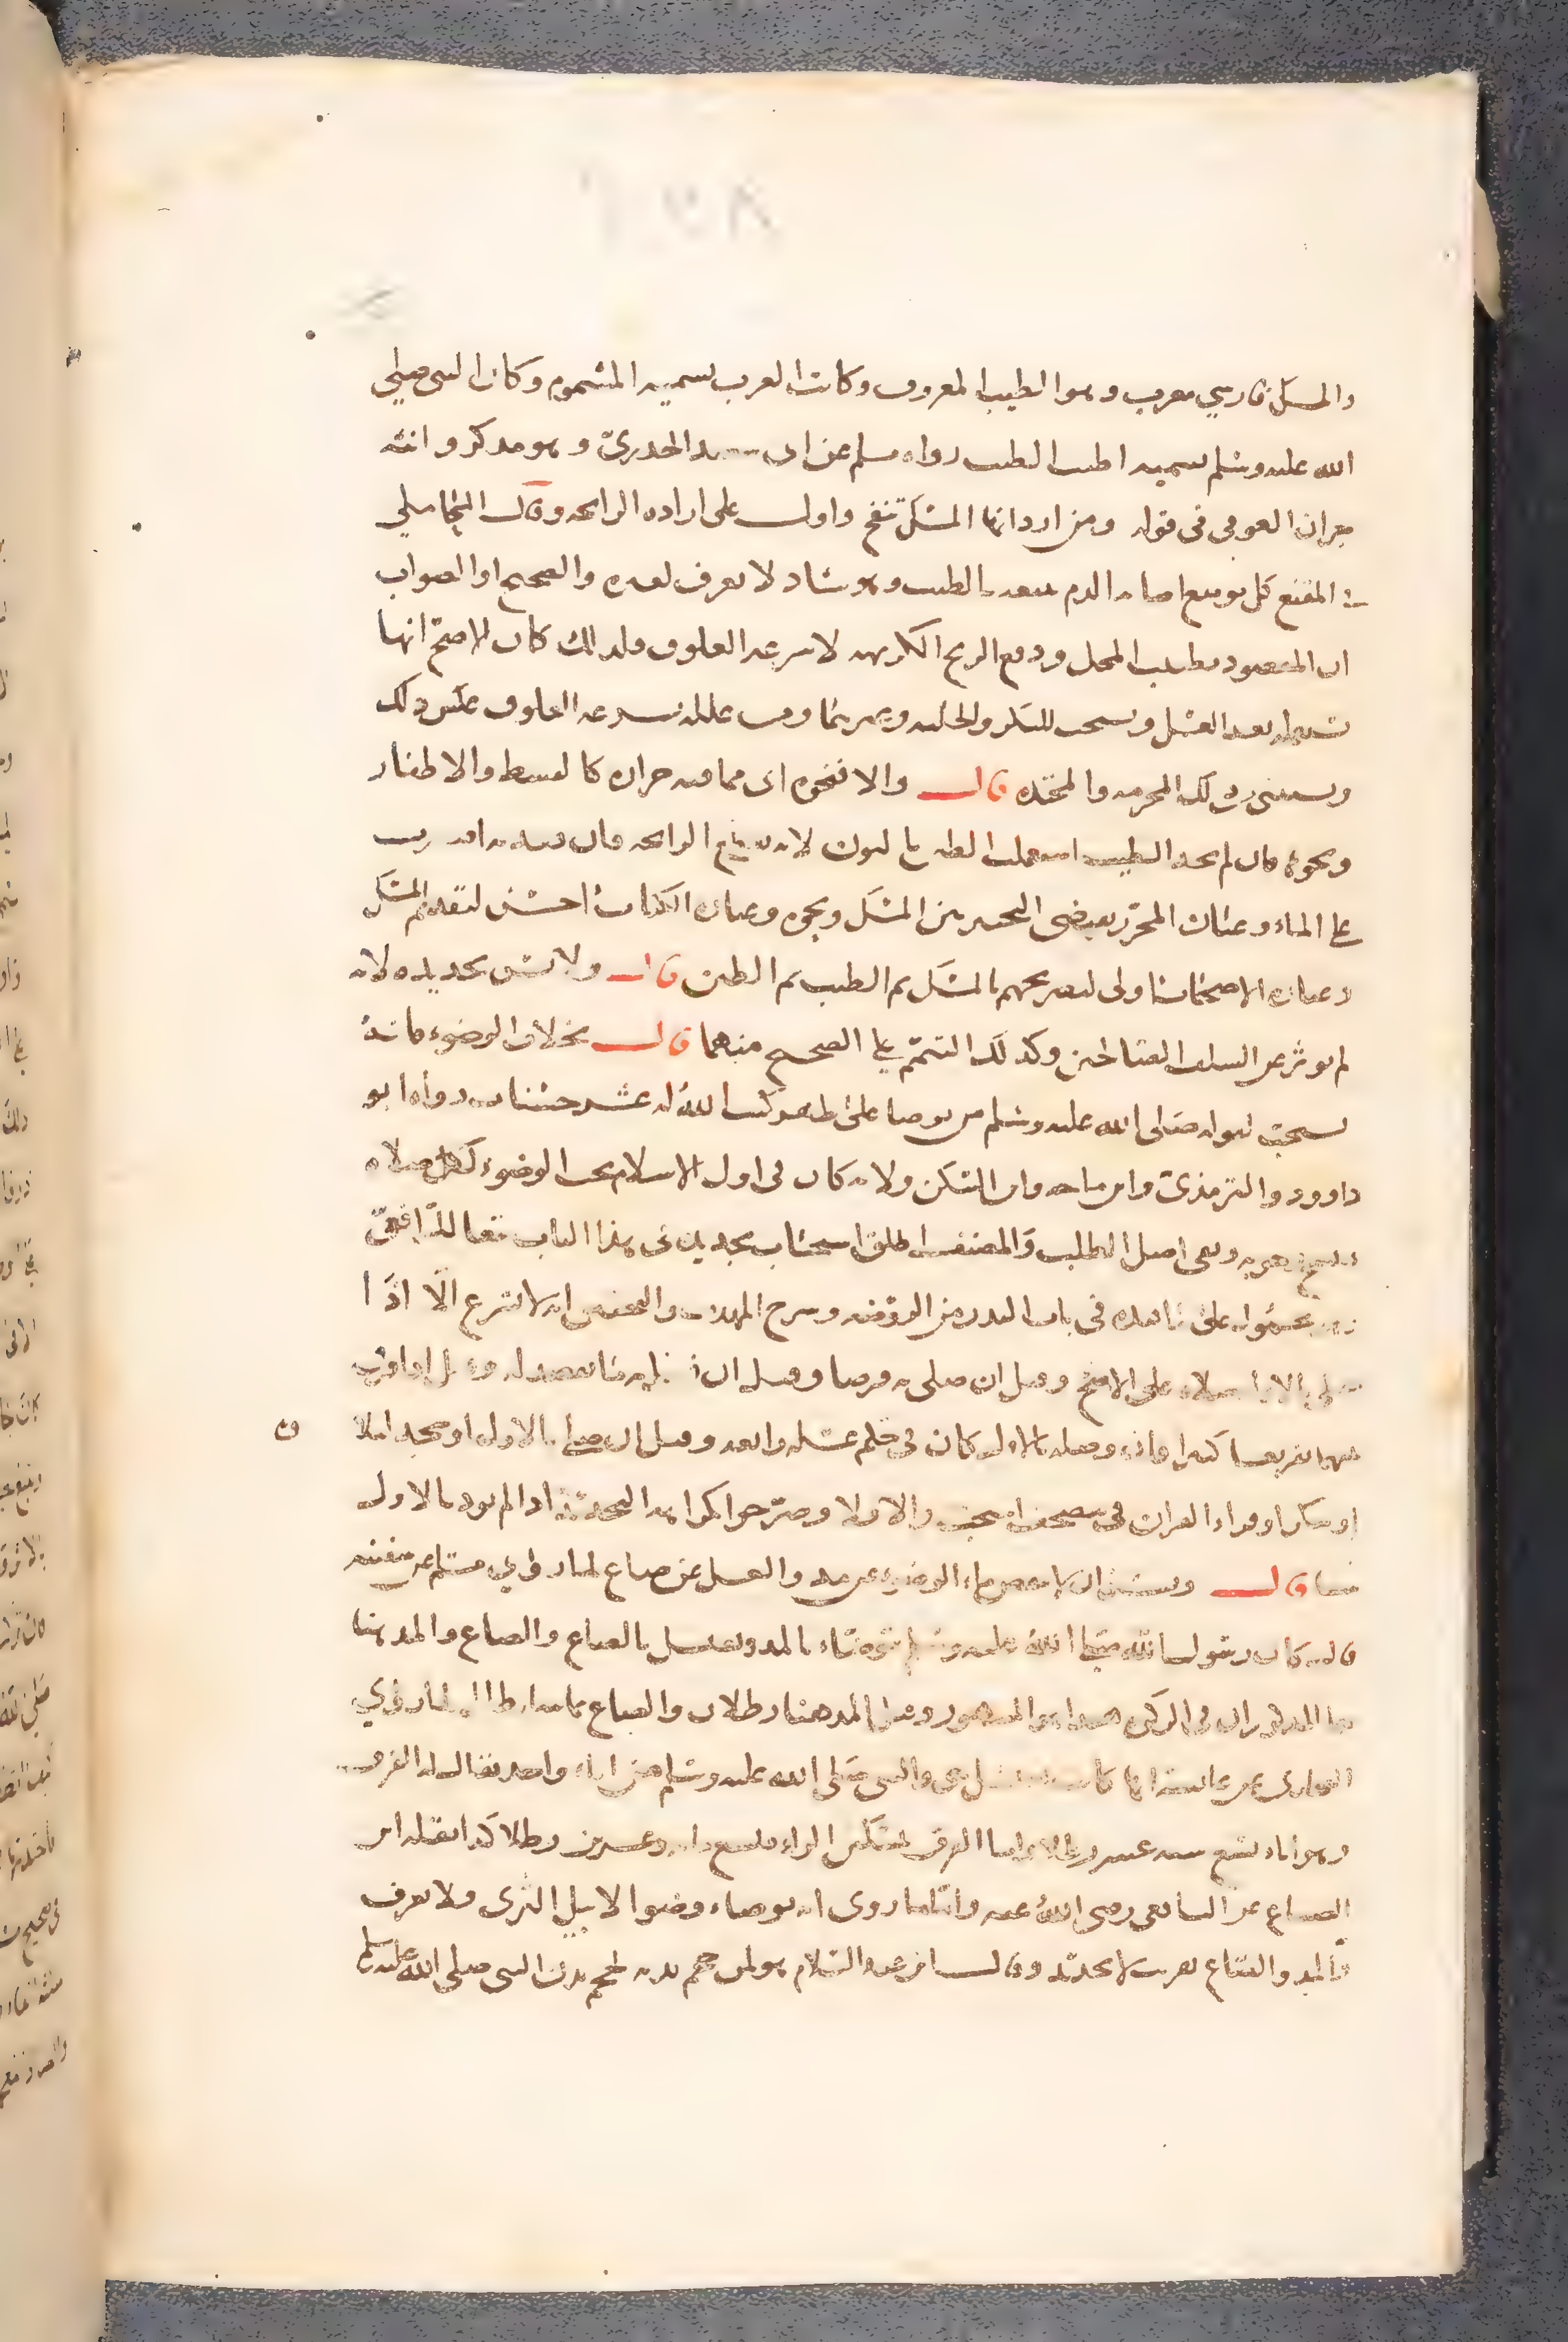 والمسك فارسي معرب وهو الطيب المعروف وكانت العرب تسميه المشموم وكان النبي صلى
الله عليه وسلم يسميه اطيب الطيب رواه مسلم عن ابي سعيد الخدريّ وهو مذكر وانثه
جران العود في قوله ومن اردانها المسك تنفح واول على اراده الرايحه وقال المحاملي
في المقنع كل موضع اصابه الدم تتبعه بالطيب وهو شاذ لا يعرف لغيره والصحيح او الصواب
ان المقصود تطييب المحل ودفع الريح الكريهه لا سرعه العلوق ولذلك كان الاصح انها
تستعمله بعد الغسل ويستحب للبكر والخليه وغيرهما ومن علله بسرعه العلوق عكس ذلك
ويستثنى من ذلك المحرمه والمحده قال والا فنحوه اى مما فيه حراره كالقسط والاظفار
ونحوه فان لم تجد الطيب استعملت الطين لانه يقطع الرايحه فان
على الماء وعبارة المحرر تقتضي التخيير بين المسك ونحوه وعبارة الكتاب احسن لتقديم المسك
وعبارة الاصحاب اولى لتصريحهم بالمسك ثم الطيب ثم الطين قال ولا يسن تجديده لانه
لم يوثر عن السلف الصالحين وكذلك التيمم على الصحيح منهما قال بخلاف الوضوء فانه
يستحب لقوله صلى الله عليه وسلم من توضا على طهر كتب الله له عشر حسنات رواه ابو
داوود والترمذي وابن ماجه وابن السكن ولانه كان في اول الاسلام يجب الوضوء لكل صلاه
فنسخ وجوبه وبقى اصل الطلب والمصنف اطلق استحباب تجديده في هذا الباب تبعا للرافعى
على زائده في باب النذر من الروضه وشرح المهذب والتحقيق انه لا يشرع الا اذا
صلى بالاول صلاه على الاصح وقيل ان صلى به فرضا وقيل ان
بينهما تفريقا كثيرا فاذا وصله بالاول كان في حكم غسله رابعه وقيل ان صلى بالاول او سجد لتلاوه
او شكر او قراء القران في مصحف استحب والا فلا وصرحوا بكراهه التجديد اذا لم يود بالاول
شيا قال ويسن ان لا ينقص ماء الوضوء عن مد والغسل عن صاع لما روى مسلم عن سفينه
قال كان رسول الله صلى الله عليه وسلم يتوضاء بالمد ويغتسل بالصاع والصاع والمد هنا
هما المذكوران في الزكاه هذا هو المشهور وقيل المد هنا رطلان والصاع ثمانيه ارطال لما روى
البخارى عن عايشه انها كانت تغتسل هي والنبي صلى الله عليه وسلم من اناء واحد يقال له الفرق
وهو اناء يسع سته عشر رطلا واما الفرق بتسكين الراء فيسع مايه وعشرين رطلا كذا نقله ابن
الصباغ عن الشافعي رضي الله عنه واما ما روى انه توضاء وضوا لا يبل الثرى فلا يعرف
والمد والصاع تقريب لا تحديد وقال ابن عبد السلام هو لمن حجم بدنه لحجم بدن النبى صلى الله عليه وسلم